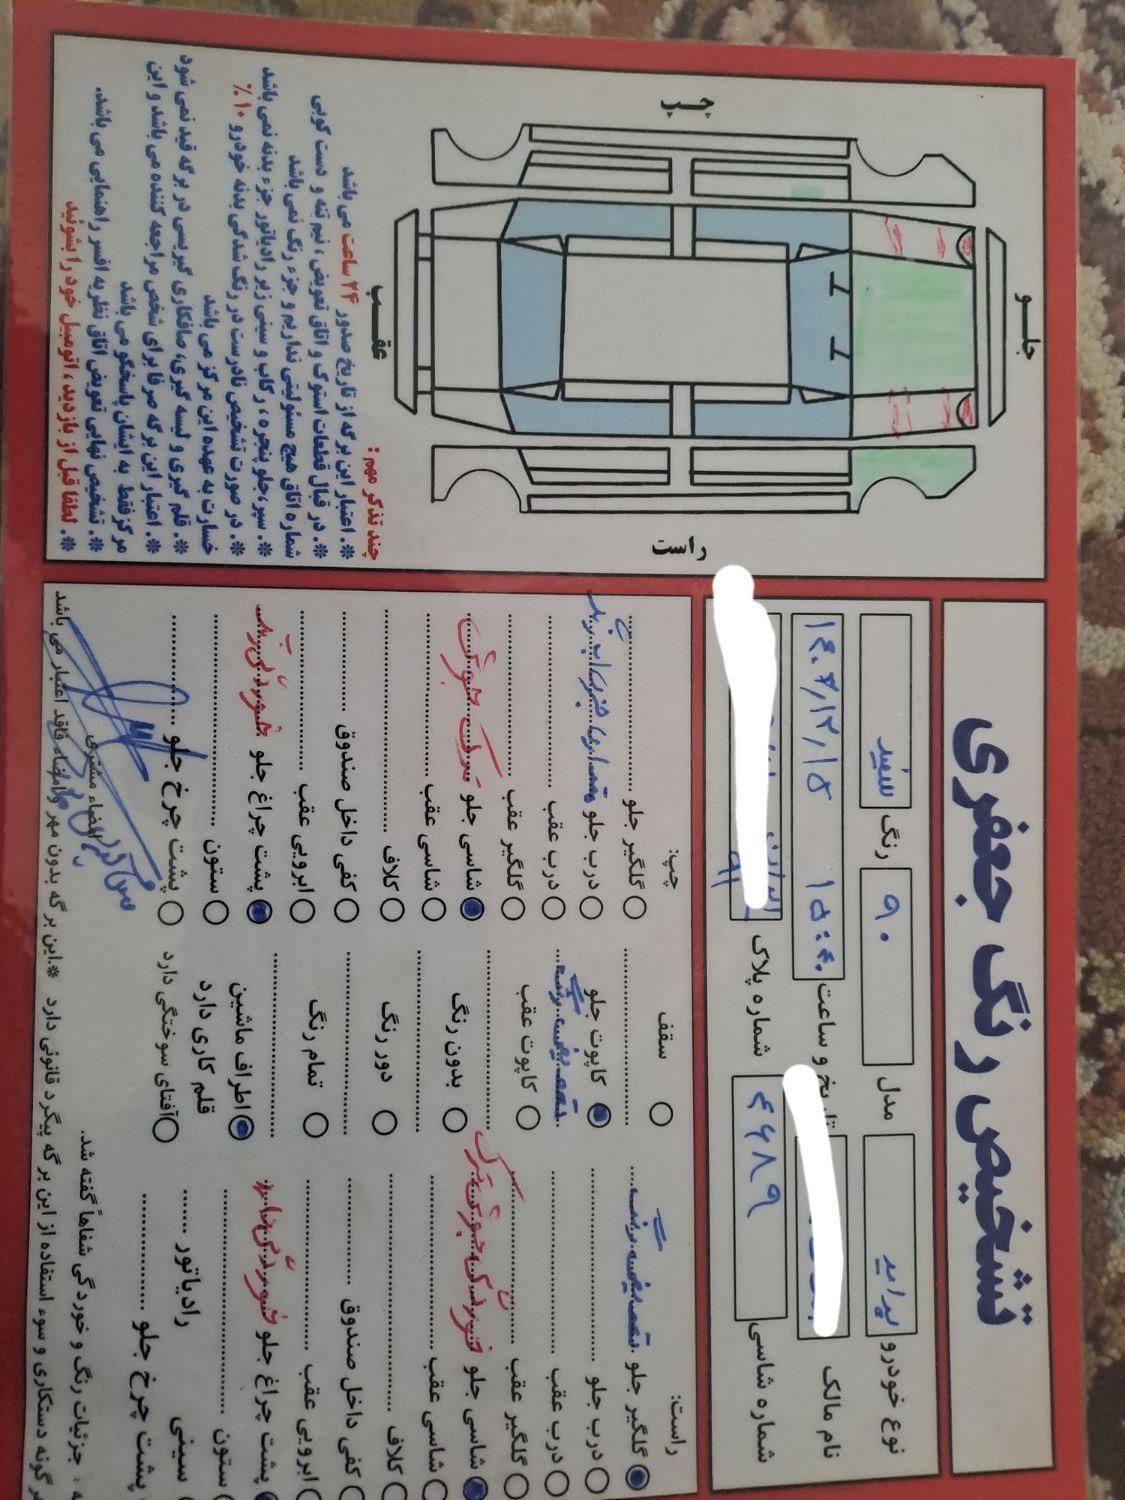 تشخیص رنگ جعفری
نوع خودرو پراید مدل ۹۰ رنگ سفید
نام مالک تاریخ و ساعت ۱۴۰۳/۱۲/۱۵ ۱۵:۴۰
شماره شاسی ۴۶۸۹ شماره پلاک ایران ۹۱
راست:
گلگیر جلو تعویض رنگ
درب جلو
درب عقب
گلگیر عقب
شاسی جلو ترک جوش
شاسی عقب
کلاف
کفی داخل صندوق
ابرویی عقب
پشت چراغ جلو خوردگی دارد
ستون
سینی رادیاتور
پشت چرخ جلو
سقف
کاپوت جلو
تعویض رنگ
کاپوت عقب
بدون رنگ
دور رنگ
تمام رنگ
اطراف ماشین
قلم کاری دارد
آفتاب سوختگی دارد
چپ:
گلگیر جلو
درب جلو مقداری
درب عقب
گلگیر عقب
شاسی جلو ترک جوش
شاسی عقب
کلاف
کفی داخل صندوق
ابرویی عقب
پشت چراغ جلو خوردگی
ستون
پشت چرخ جلو
: جزئیات رنگ و خوردگی شفاهاً گفته شد.
امضاء مشتری
گونه دستکاری و سوء استفاده از این برگه پیگرد قانونی دارد *.این برگه بدون مهر و امضاء فاقد اعتبار می باشد
راست
جلو
عقب
چپ
چند تذکر مهم :
*. اعتبار این برگه از تاریخ صدور ۲۴ ساعت می باشد
*. در قبال قطعات استوک و اتاق تعویض ، نیم تنه و دست کوبی
شماره اتاق هیچ مسئولیتی نداریم و جزء رنگ نمی باشد
*. سپر،جلو پنجره ، رکاب و سینی زیر رادیاتور جزء بدنه نمی باشد
*. در صورت تشخیص نادرست در رنگ شدگی بدنه خودرو ۱۰٪
خسارت به عهده این مرکز می باشد
*. قلم گیری و لیسه گیری، صافکاری گیریسی در برگه قید نمی شود
*. اعتبار این برگه صرفا برای شخص مراجعه کننده می باشد و این
مرکز فقط به ایشان پاسخگو می باشد
*. تشخیص نهایی تعویض اتاق نظر به افسر راهنمایی می باشد.
*. لطفا قبل از بازدید ، اتومبیل خود را بشوئید